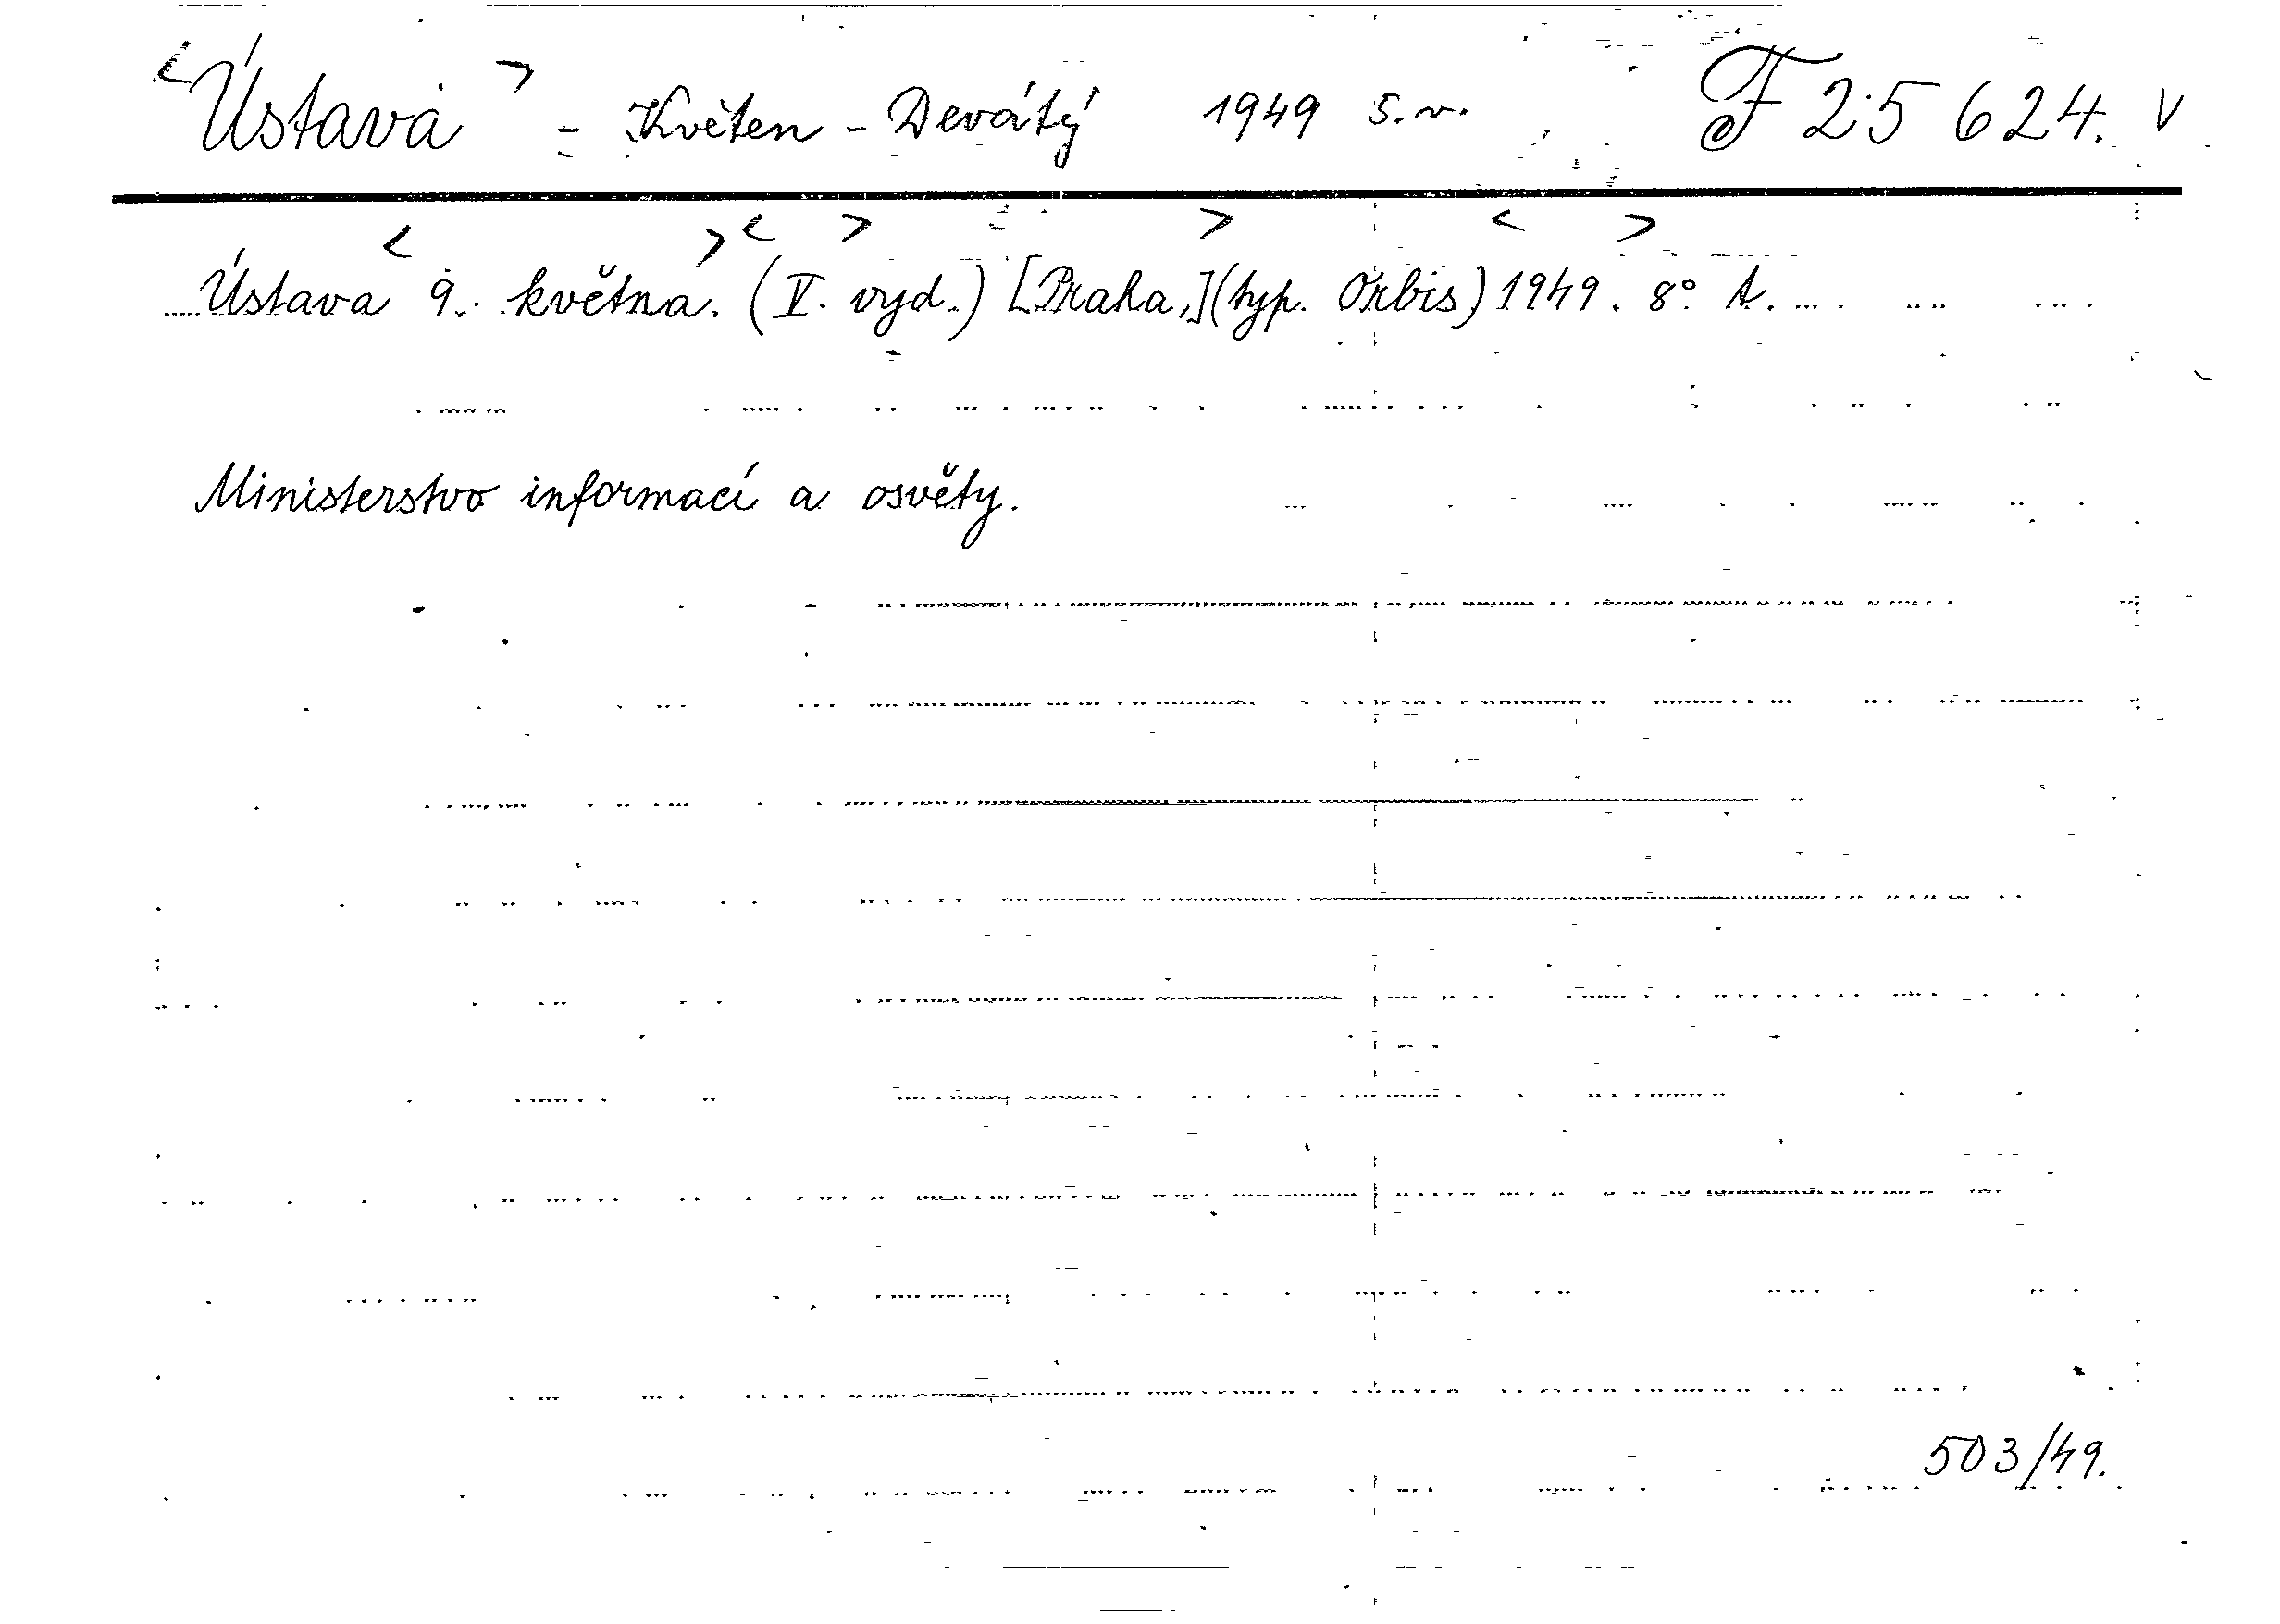 <Ústava> - Květen - Devátý 1949 s.v. F 25 624. V
Ústava <9. května.> <(V. vyd.)> [Praha,] (typ. Orbis) 1949. 8°. A.
Ministerstvo informací a osvěty.
503/49.